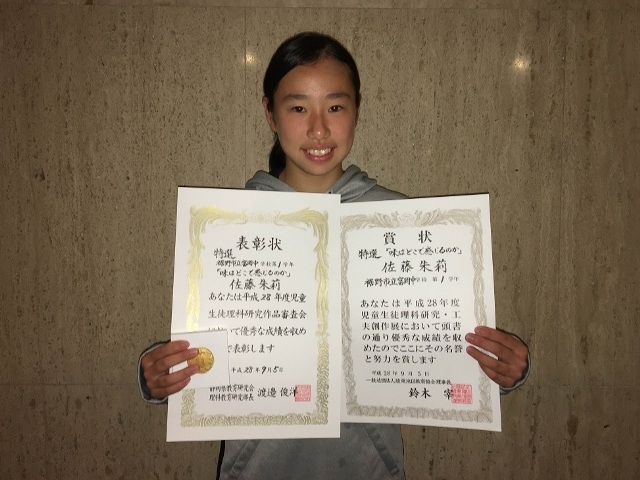 表彰状
特選
裾野市立富岡中学校第1学年
「味はどこで感じるのか」
佐藤朱莉
あなたは平成28年度児童
生徒理科研究作品審査会
おいて優秀な成績を収め
で表彰します
平成28年9月5日
静岡県教育研究会
理科教育研究部長 渡邉俊洋
賞状
特選 「味はどこで感じるのか」
佐藤朱莉
裾野市立富岡中学校 第1学年
あなたは平成28年度
児童生徒理科研究・工
夫創作展において頭書
の通り優秀な成績を収
めたのでここにその名誉
と努力を賞します
平成28年9月5日
鈴木